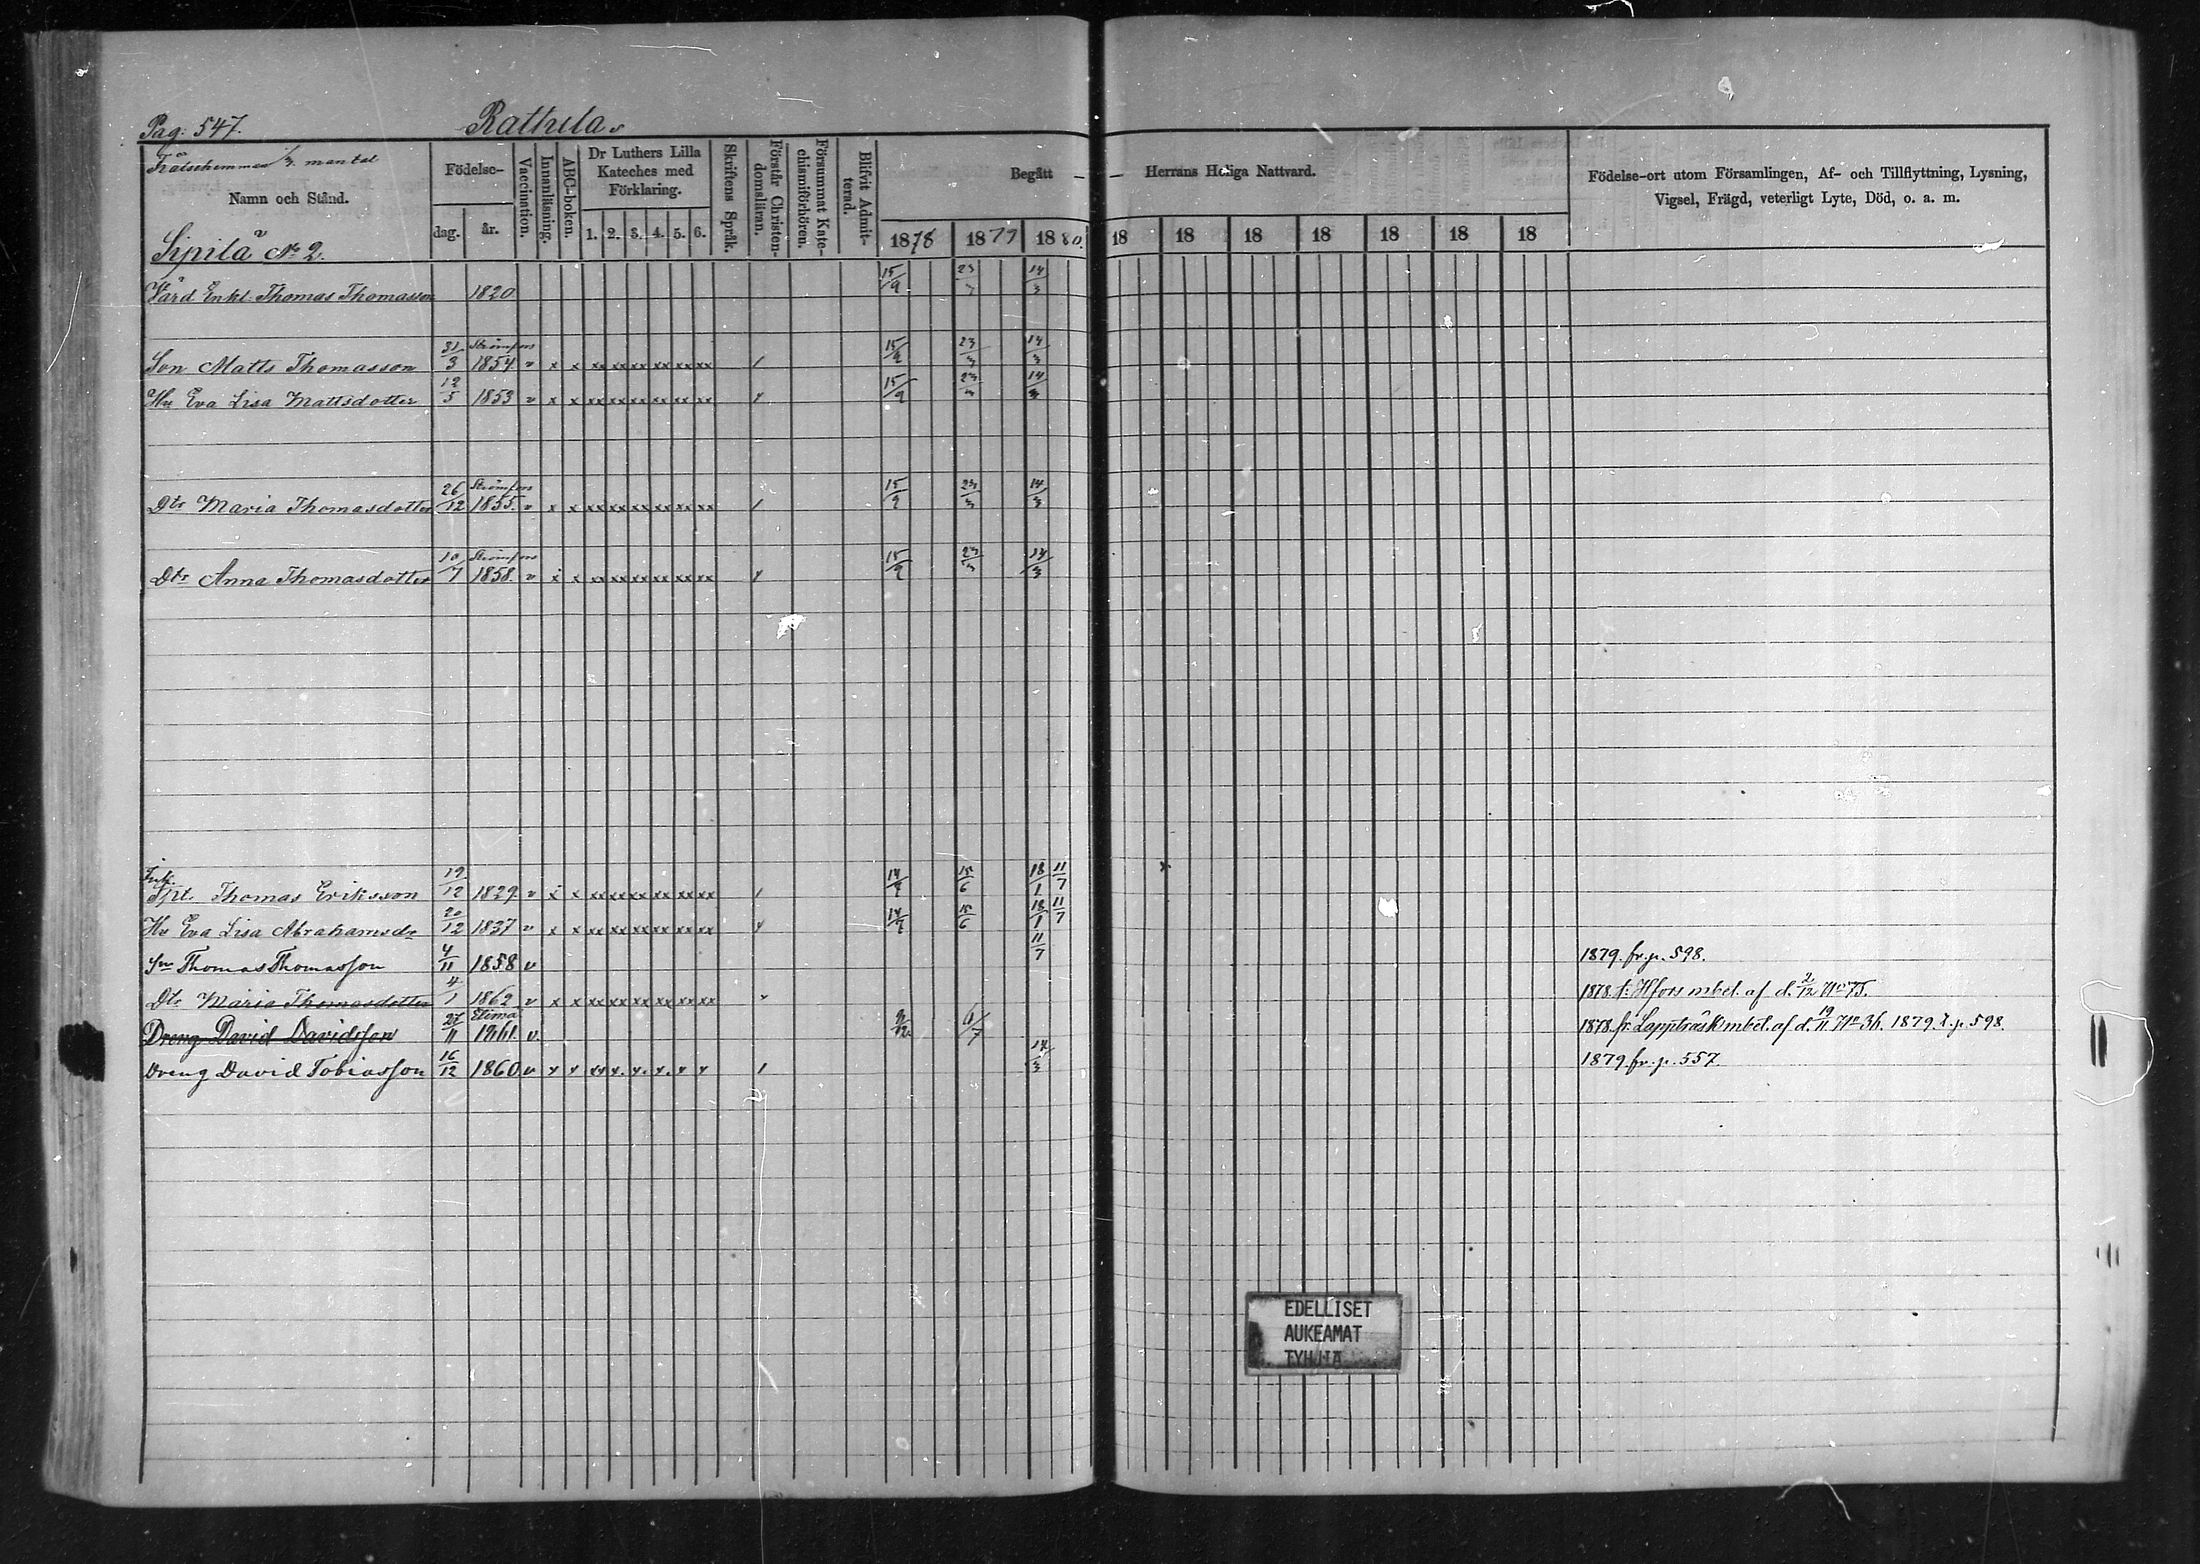 Pag: 547. Rathula
Frälsehemman mantal
Namn och Stånd.
Födelse-
dag. år.
Vaccination.
Innanläsning.
ABC-boken.
Dr Luthers Lilla Kateches med Förklaring.
1. 2. 3. 4. 5. 6.
Skriftens Språk.
Förstår Christendomsläran.
Försummat Katechismiförhören.
Blifvit Admitterad.
Begått — — Herrans Heliga Nattvard.
1878 1879 1880. 18 18 18 18 18 18 18
Födelse-ort utom Församlingen, Af- och Tillflyttning, Lysning,
Vigsel, Frägd, veterligt Lyte, Död, o. a. m.
Sipilä No 2.
Vård Enkl. Thomas Thomasson 1820 15/9 23/3 14/3
Son Matts Thomasson 31/3 Strömfors 1854. v x x xx xx xx xx xx xx / 15/9 23/3 14/3
Hu Eva Lisa Mattsdotter 12/5 1853 v x x xx xx xx xx xx xx 15/9 23/3 14/3
Dtr Maria Thomasdotter 26/12 Strömfors 1855. v x x xx xx xx xx xx xx / 15/9 23/3 14/3
Dtr Anna Thomasdotter 10/7 Strömfors 1858. v x x xx xx xx xx xx xx 15/9 23/3 14/3
Thomas Eriksson 19/12 1829. v x x xx xx xx xx xx xx / 15/6 18/1 11/7
Hu Eva Lisa Abrahamsdr 20/12 1837 v x x xx xx xx xx xx xx 15/6 18/1 11/7
Sn Thomas Thomasson 4/11 1858 v 11/7 1879. fr. p. 598.
Dtr Maria Thomasdotter 4/1 1862 v x x xx xx xx xx xx xx v 1878. fr. Hfors mbet. af d. 2/12 71 no 75.
Dreng David Davidsson 27/11 Elimä 1861. v. 1878. fr. Lappträsk mbet. af d. 19/11 71 no 36. 1879. t. p. 598.
Dreng David Tobiasson 16/12 1860. v x x xx x. x. x. x x / 14/3 1879. fr. p. 557.
EDELLISET
AUKEAMAT
TYHJIÄ